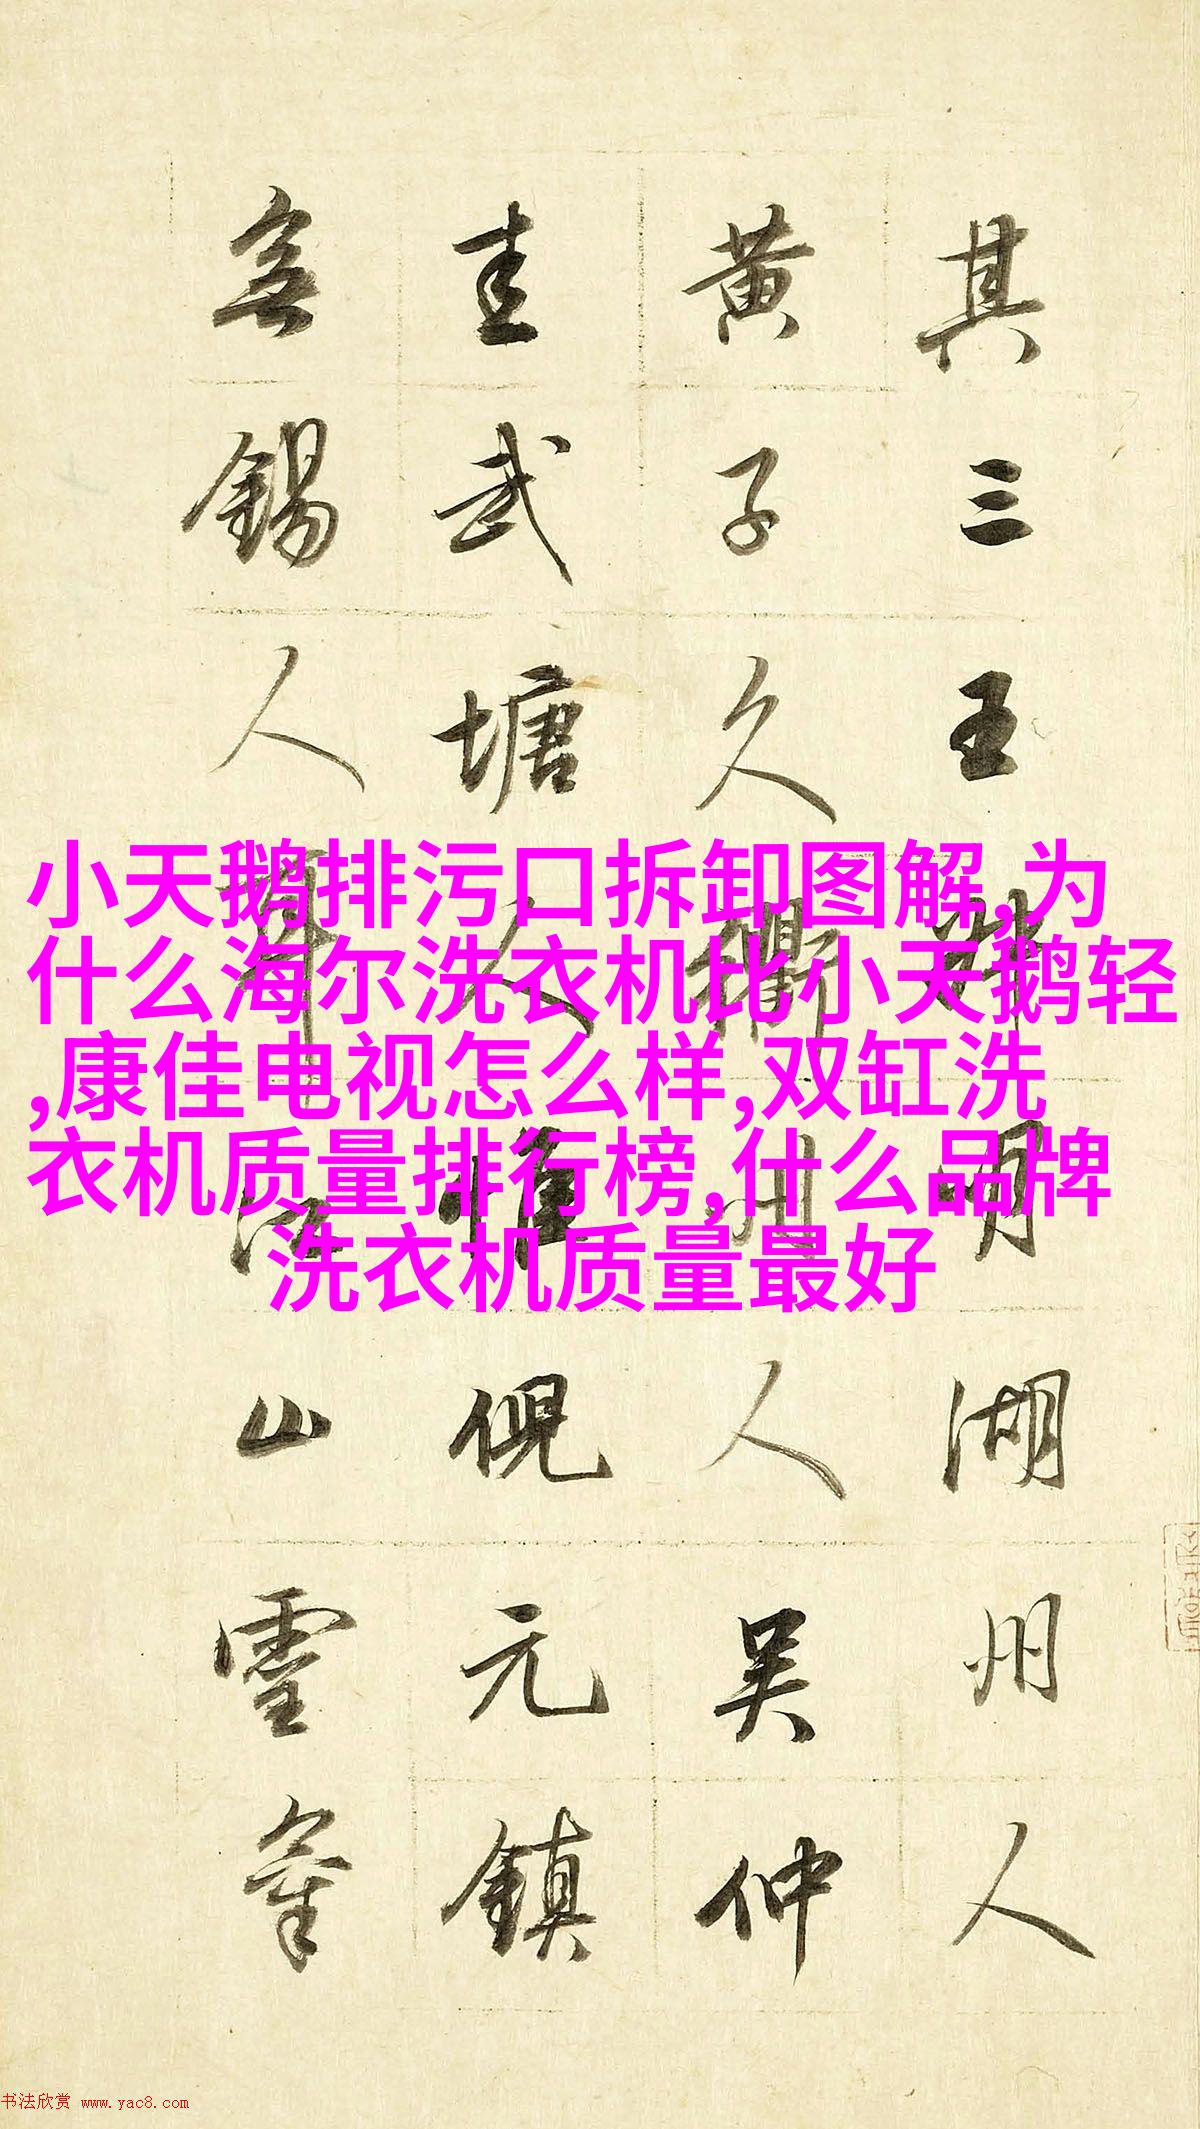 其三王叔明湖州人
黄子久衢州人吴仲
圭武塘人惟倪元鎮
無錫人耳江山靈氣
小天鹅排污口拆卸图解,为
什么海尔洗衣机比小天鹅轻
,康佳电视怎么样,双缸洗
衣机质量排行榜,什么品牌
洗衣机质量最好
书法欣赏 www.yac8.com